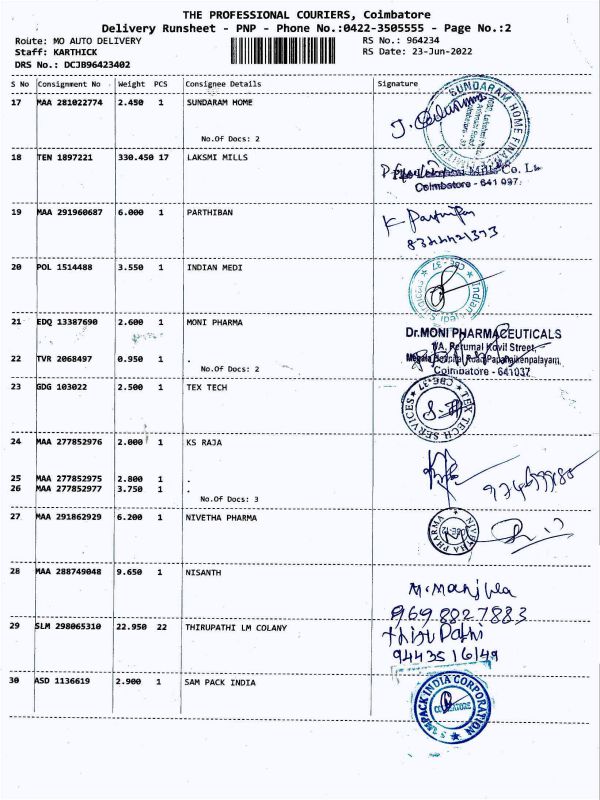 THE PROFESSIONAL COURIERS, Coimbatore
Delivery Runsheet - PNP - Phone No.:0422-3505555 - Page No.:2
Route: MO AUTO DELIVERY RS No.: 964234
Staff: KARTHICK RS Date: 23-Jun-2022
DRS No.: DCJB96423402
S No Consignment No Weight PCS Consignee Details Signature
17 MAA 281022774 2.450 1 SUNDARAM HOME
SUNDARAM HOME FINANCE LIMITED
No.Of Docs: 2
18 TEN 1897221 330.450 17 LAKSMI MILLS
Mills Co. Lt
Coimbatore - 641 037.
19 MAA 291960687 6.000 1 PARTHIBAN
K Parthipan
20 POL 1514488 3.550 1 INDIAN MEDI
CBE-37
21 EDQ 13387690 2.600 1 MONI PHARMA
Dr.MONI PHARMACEUTICALS
1/A, Perumal Kovil Street,
22 TVR 2068497 0.950 1 .
Road Papanaickenpalayam,
No.Of Docs: 2
Coimbatore - 641037
23 GDG 103022 2.500 1 TEX TECH
TEX TECH SERVICES CBE-37
24 MAA 277852976 2.000 1 KS RAJA
25 MAA 277852975 2.800 1 .
26 MAA 277852977 3.750 1 .
No.Of Docs: 3
27 MAA 291862929 6.200 1 NIVETHA PHARMA
NIVETHA PHARMA
28 MAA 288749048 9.650 1 NISANTH
M. Manjula
9698827883
29 SLM 298065310 22.950 22 THIRUPATHI LM COLANY
thiru Pathi
9443516149
30 ASD 1136619 2.900 1 SAM PACK INDIA
SAMPACK INDIA CORPORATION
COIMBATORE